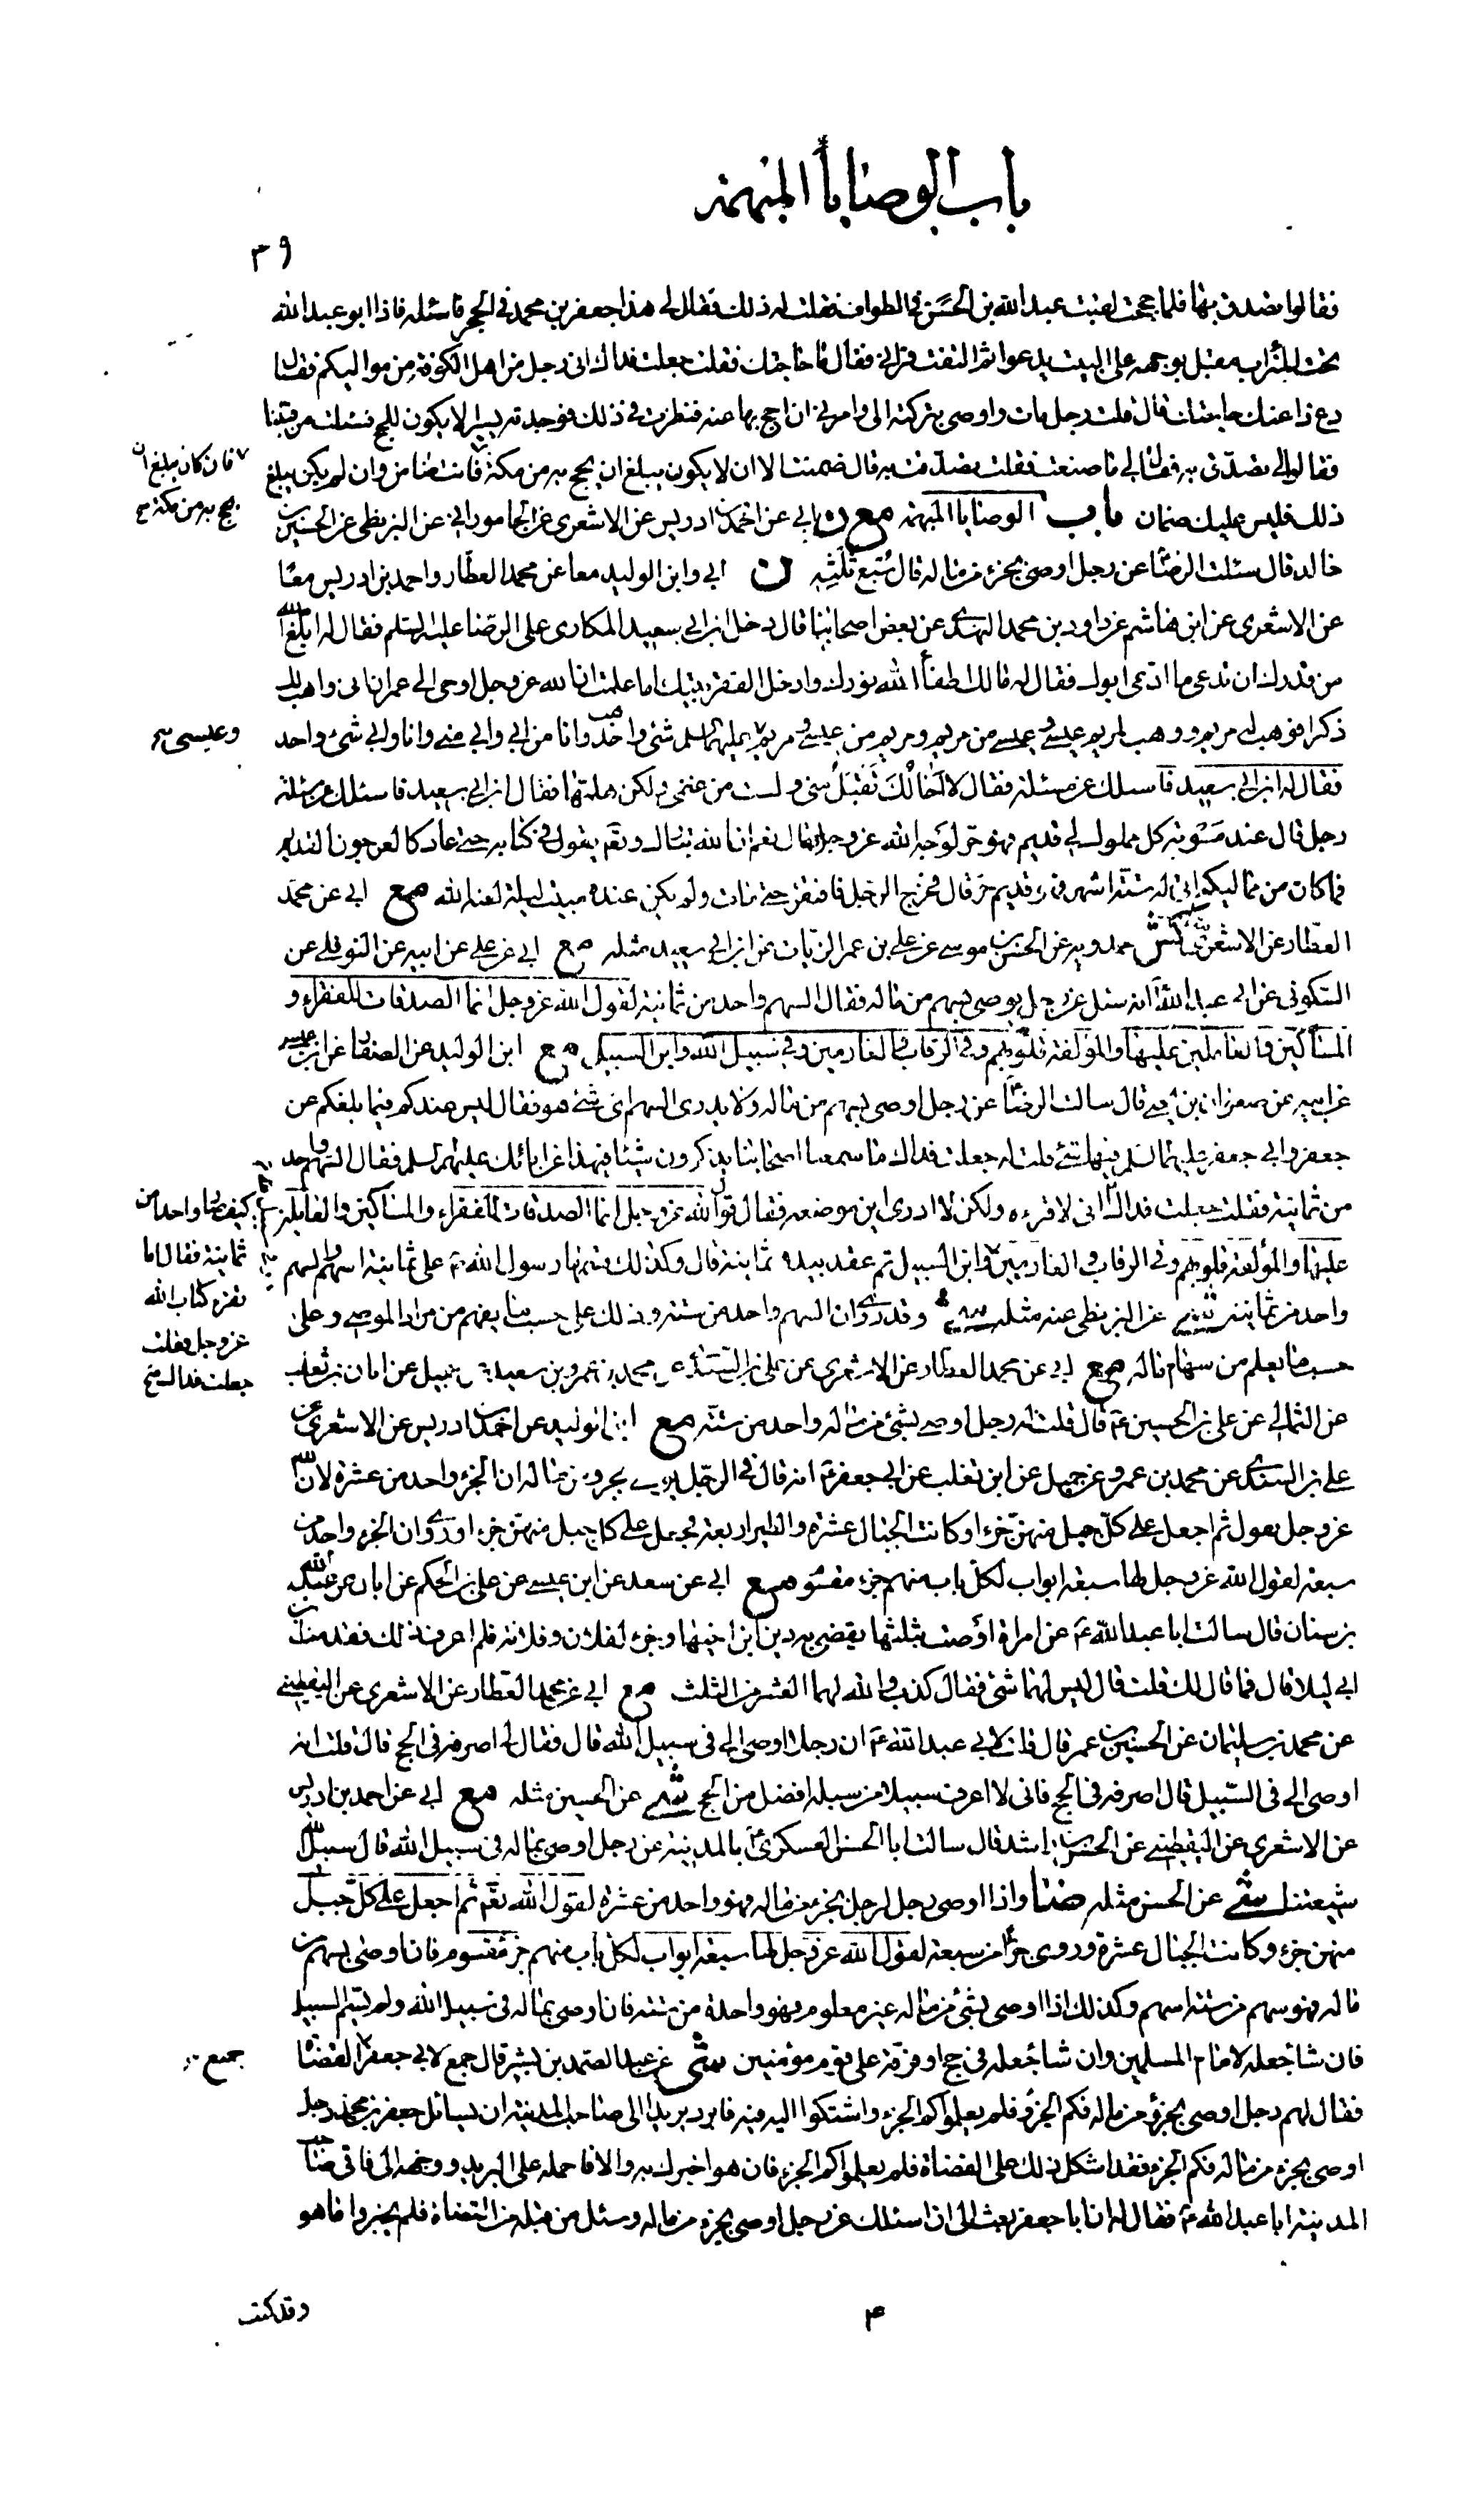 باب الوصايا المبهمة
٣٩
فقالوا تصدق بها فلما حججت لقيت عبد الله بن الحسن في الطواف فقلت له ذلك فقال لي هذا جعفر بن محمد في الحجر فاسئله فاذا ابو عبد الله
تحت الميزاب مقبل بوجهه على البيت يدعو ثم التفت فرآني فقال ما حاجتك فقلت جعلت فداك اني رجل من اهل الكوفة من مواليكم فقال
دع ذا عنك حاجتك قال قلت رجل مات واوصى بتركته الي وامرني ان احج بها عنه فنظرت في ذلك فوجدته يسيرا لا يكون للحج فسئلت من قبلنا
فقالوا لي تصدق به فقال لي ما صنعت فقلت تصدقت به قال ضمنت الا ان لا يكون يبلغ ان يحج به من مكة فانت ضامن وان لم يكن يبلغ
فان كان يبلغ ان
يحج به من مكة
ذلك فليس عليك ضمان باب الوصايا المبهمة مع ن ابي عن احمد بن ادريس عن الاشعري عن الجاموراني عن البزنطي عن الحسين بن
خالد قال سئلت الرضا عن رجل اوصى بجزء من ماله قال سبع ثلثه ن ابي وابن الوليد معا عن محمد العطار واحمد بن ادريس معا
عن الاشعري عن ابن هاشم عن داود بن محمد النهدي عن بعض اصحابنا قال دخل ابن ابي سعيد المكاري على الرضا عليه السلم فقال له ابلغ الله
من قدرك ان تدعي ما ادعى ابوك فقال له مالك اطفأ الله نورك وادخل الفقر بيتك اما علمت ان الله عز وجل اوحى الى عمران اني واهب لك
ذكرا فوهب له مريم ووهب لمريم عيسى فعيسى من مريم ومريم من عيسى ومريم عليهما السلم شئ واحد وانا من ابي وابي مني وانا وابي شئ واحد
وعيسى
فقال له ابن ابي سعيد فاسئلك عن مسئلة فقال لا اخالك تقبل مني ولست من غنمي ولكن هلمها فقال ابن ابي سعيد فاسئلك عن مسئلة
رجل قال عند موته كل مملوك لي قديم فهو حر لوجه الله عز وجل قال نعم ان الله تبارك وتعالى يقول في كتابه حتى عاد كالعرجون القديم
فما كان من مماليكه اتى له ستة اشهر فهو قديم حر قال فخرج الرجل فافتقر حتى مات ولم يكن عنده مبيت ليلة لعنه الله مع ابي عن محمد
العطار عن الاشعري عن الحسن بن موسى عن علي بن عمر الزيات عن ابن ابي سعيد مثله مع ابي عن علي عن ابيه عن النوفلي عن
السكوني عن ابي عبد الله انه سئل عن رجل يوصي بسهم من ماله فقال السهم واحد من ثمانية لقول الله عز وجل انما الصدقات للفقراء و
المساكين والعاملين عليها والمؤلفة قلوبهم وفي الرقاب والغارمين وفي سبيل الله وابن السبيل مع ابن الوليد عن الصفار عن ابن عيسى
عن ابيه عن صفوان بن يحيى قال سالت الرضا عن رجل اوصى بسهم من ماله ولا يدرى السهم اي شئ هو فقال ليس عندكم فيما بلغكم عن
جعفر وابي جعفر عليهما السلم فيها شئ قلت له جعلت فداك ما سمعنا اصحابنا يذكرون شيئا في هذا عن ابائك عليهم السلم فقال السهم واحد
من ثمانية فقلت جعلت فداك اني لاقرءه ولكن لا ادري اين موضعه فقال قول الله عز وجل انما الصدقات للفقراء والمساكين والعاملين
كيف صار واحدا من
ثمانية فقال اما
تقرء كتاب الله
عز وجل فقلت
جعلت فداك
عليها والمؤلفة قلوبهم وفي الرقاب والغارمين وابن السبيل ثم عقد بيده ثمانية قال وكذلك قسمها رسول الله ص على ثمانية اسهم والسهم
واحد من ثمانية شى عن البزنطي عنه مثله وقد روي ان السهم واحد من ستة وذلك على حسب ما يفهم من مراد الموصي وعلى
حسب ما يعلم من سهام ماله مع ابي عن محمد العطار عن الاشعري عن علي بن السندي عن محمد بن عمرو بن سعيد عن جميل عن ابان بن تغلب
عن الثمالي عن علي بن الحسين ع قال قلت له رجل اوصى بشئ من ماله قال واحد من ستة مع ابن الوليد عن احمد بن ادريس عن الاشعري عن
علي بن السندي عن محمد بن عمرو عن جميل عن ابن تغلب عن ابي جعفر ع انه قال في الرجل يوصي بجزء من ماله ان الجزء واحد من عشرة لان الله
عز وجل يقول ثم اجعل على كل جبل منهن جزءا وكانت الجبال عشرة والطير اربعة فجعل على كل جبل منهن جزءا وروي ان الجزء واحد من
سبعة لقول الله عز وجل لها سبعة ابواب لكل باب منهم جزء مقسوم مع ابي عن سعد عن ابن عيسى عن علي بن الحكم عن ابان عن عبد الله
بن سنان قال سالت ابا عبد الله ع عن امراة اوصت بثلثها يقضى به دين ابن اخيها وجزء لفلان وفلانة فلم اعرف ذلك فقدمنا الى ابن
ابي ليلا قال فما قال لك قلت قال ليس لهما شئ فقال كذب والله لهما العشر من الثلث مع ابي عن محمد العطار عن الاشعري عن اليقطيني
عن محمد بن سليمان عن الحسين بن عمر قال قلت لابي عبد الله ع ان رجلا اوصى الي في سبيل الله قال فقال لي اصرفه في الحج قال قلت انه
اوصى الي في السبيل قال اصرفه في الحج فاني لا اعرف سبيلا من سبله افضل من الحج شى عن الحسين مثله مع ابي عن احمد بن ادريس
عن الاشعري عن اليقطيني عن الحسن بن راشد قال سالت ابا الحسن العسكري ع بالمدينة عن رجل اوصى بماله في سبيل الله قال سبيل الله
شيعتنا شى عن الحسن مثله ضا واذا اوصى رجل لرجل بجزء من ماله فهو واحد من عشرة لقول الله تعالى ثم اجعل على كل جبل
منهن جزءا وكانت الجبال عشرة وروي جزءا من سبعة لقول الله عز وجل لها سبعة ابواب لكل باب منهم جزء مقسوم فان اوصى بسهم من
ماله فهو سهم من ستة اسهم وكذلك اذا اوصى بشئ من ماله غير معلوم فهو واحدة من ستة فان اوصى بماله في سبيل الله ولم يسم السبيل
فان شاء جعله لامام المسلمين وان شاء جعله في حج او فرقه على قوم مؤمنين شى عن عبد الصمد بن بشير قال جمع لابي جعفر القضاة
جميع
فقال لهم رجل اوصى بجزء من ماله فكم الجزء فلم يعلموا كم الجزء واشتكوا اليه فيه فابرد بريدا الى صاحب المدينة ان يسائل جعفر بن محمد رجل
اوصى بجزء من ماله فكم الجزء فقد اشكل ذلك على القضاة فلم يعلموا كم الجزء فان هو اخبرك به والا فاحمله على البريد ووجهه الي فاتى صاحب
المدينة ابا عبد الله ع فقال له ان ابا جعفر بعث الي ان اسئلك عن رجل اوصى بجزء من ماله وسئل من قبله من القضاة فلم يخبروا ما هو
وقد كتب
٤